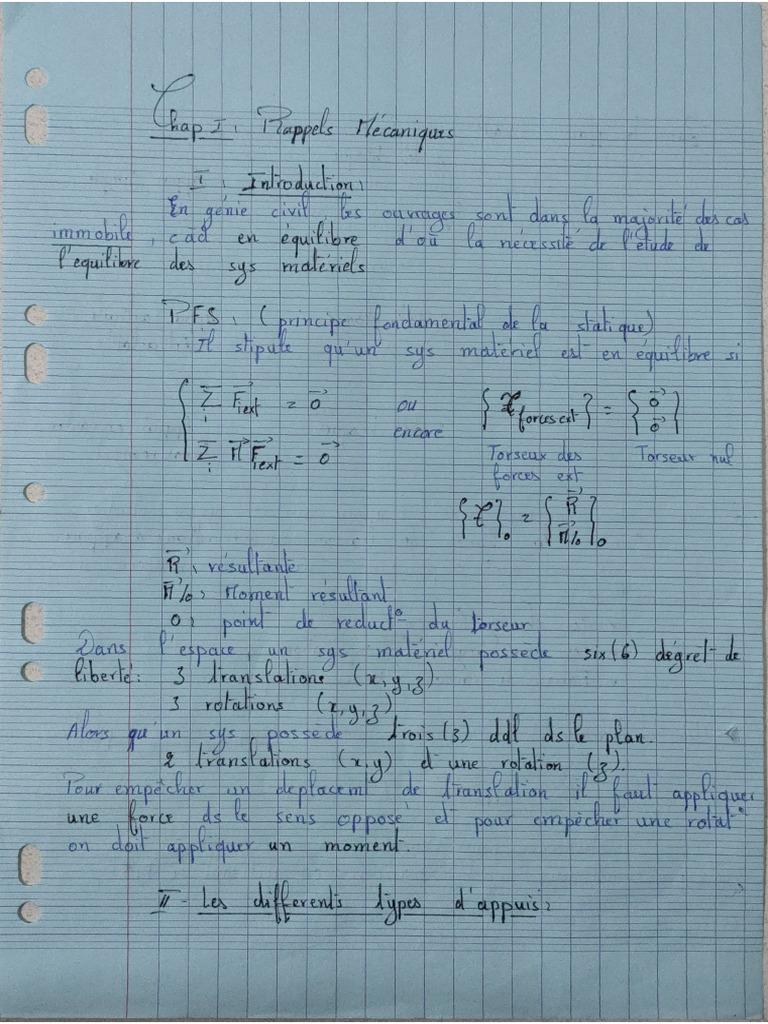 Chap I : Rappels Mécaniques
I. Introduction :
En génie civil, les ouvrages sont dans la majorité des cas
immobile, càd en équilibre d'où la nécessité de l'étude de
l'equilibre des sys matériels
PFS : (principe fondamental de la statique)
Il stipule qu'un sys matériel est en équilibre si
{ Σi F⃗iext = 0⃗ ou { 𝒯 forces ext } = { 0⃗ 0⃗ }
Σi M⃗ F⃗iext = 0⃗ encore Torseur des forces ext Torseur nul
{ 𝒯 }o = { R⃗ M⃗/o }o
R⃗ : résultante
M⃗/o : Moment résultant
O : point de reduct° du torseur
Dans l'espace, un sys matériel possède six (6) dégret de
liberté : 3 translations (x, y, z)
3 rotations (x, y, z)
Alors qu'un sys possède trois (3) ddl ds le plan.
2 translations (x, y) et une rotation (z).
Pour empêcher un deplacemt de translation il faut appliquer
une force ds le sens opposé et pour empêcher une rotat°
on doit appliquer un moment.
II - Les differents types d'appuis :